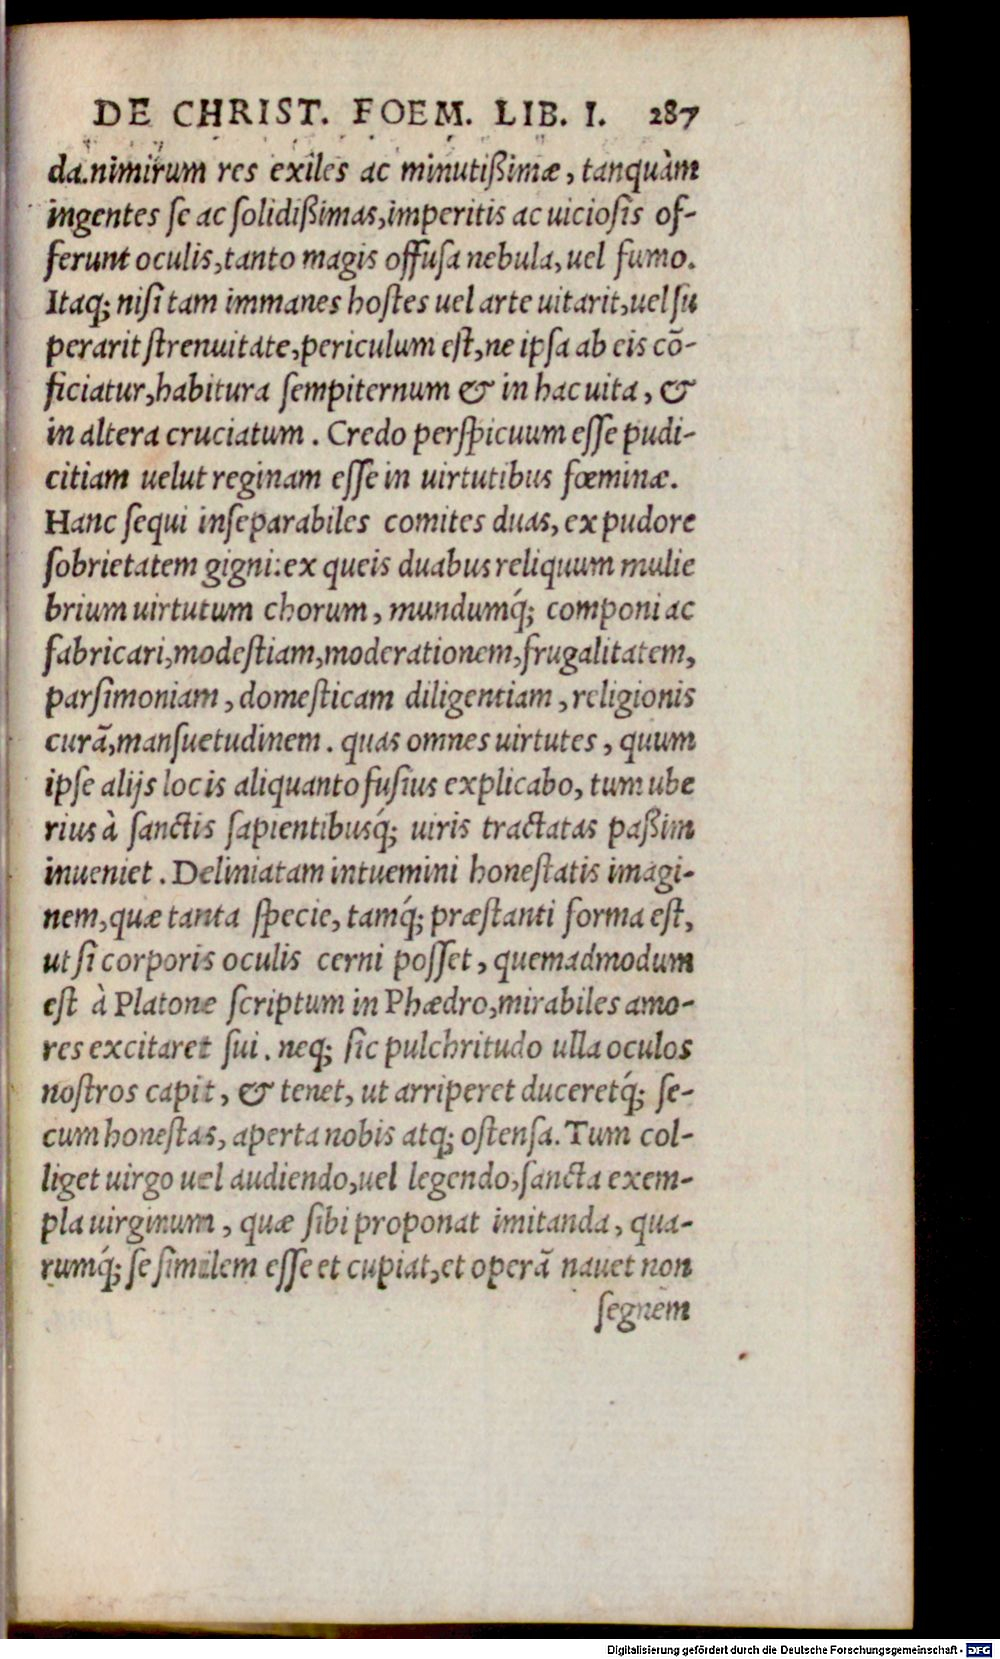 DE CHRIST. FOEM. LIB. I. 287
da.nimirum res exiles ac minutißimæ, tanquàm
ingentes se ac solidißimas,imperitis ac uiciosis of-
ferunt oculis,tanto magis offusa nebula, uel fumo.
Itaq; nisi tam immanes hostes uel arte uitarit,uel su
perarit strenuitate,periculum est,ne ipsa ab eis cõ-
ficiatur,habitura sempiternum & in hac uita, &
in altera cruciatum. Credo perspicuum esse pudi-
citiam uelut reginam esse in uirtutibus fœminæ.
Hanc sequi inseparabiles comites duas, ex pudore
sobrietatem gigni: ex queis duabus reliquum mulie
brium uirtutum chorum, mundumq́; componi ac
fabricari,modestiam,moderationem,frugalitatem,
parsimoniam, domesticam diligentiam, religionis
curã,mansuetudinem. quas omnes uirtutes, quum
ipse alijs locis aliquanto fusius explicabo, tum ube
rius à sanctis sapientibusq́; uiris tractatas paßim
inueniet. Deliniatam intuemini honestatis imagi-
nem,quæ tanta specie, tamq́; præstanti forma est,
ut si corporis oculis cerni posset, quemadmodum
est à Platone scriptum in Phædro,mirabiles amo-
res excitaret sui. neq; sic pulchritudo ulla oculos
nostros capit, & tenet, ut arriperet duceretq́; se-
cum honestas, aperta nobis atq; ostensa. Tum col-
liget uirgo uel audiendo,uel legendo,sancta exem-
pla uirginum, quæ sibi proponat imitanda, qua-
rumq́; se similem esse et cupiat,et operã nauet non
segnem
Digitalisierung gefördert durch die Deutsche Forschungsgemeinschaft - DFG